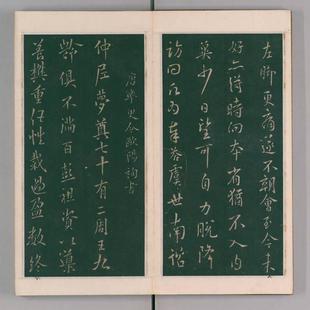 左脚更痛遂不朝會至今未
好亦得時向本省猶不入內
冀少日望可自力脱降
訪問為奉答虞世南諮
唐率更令歐陽詢書
仲尼夢奠七十有二周王九
齡俱不滿百彭祖資以導
養樊重任性裁過盈數終